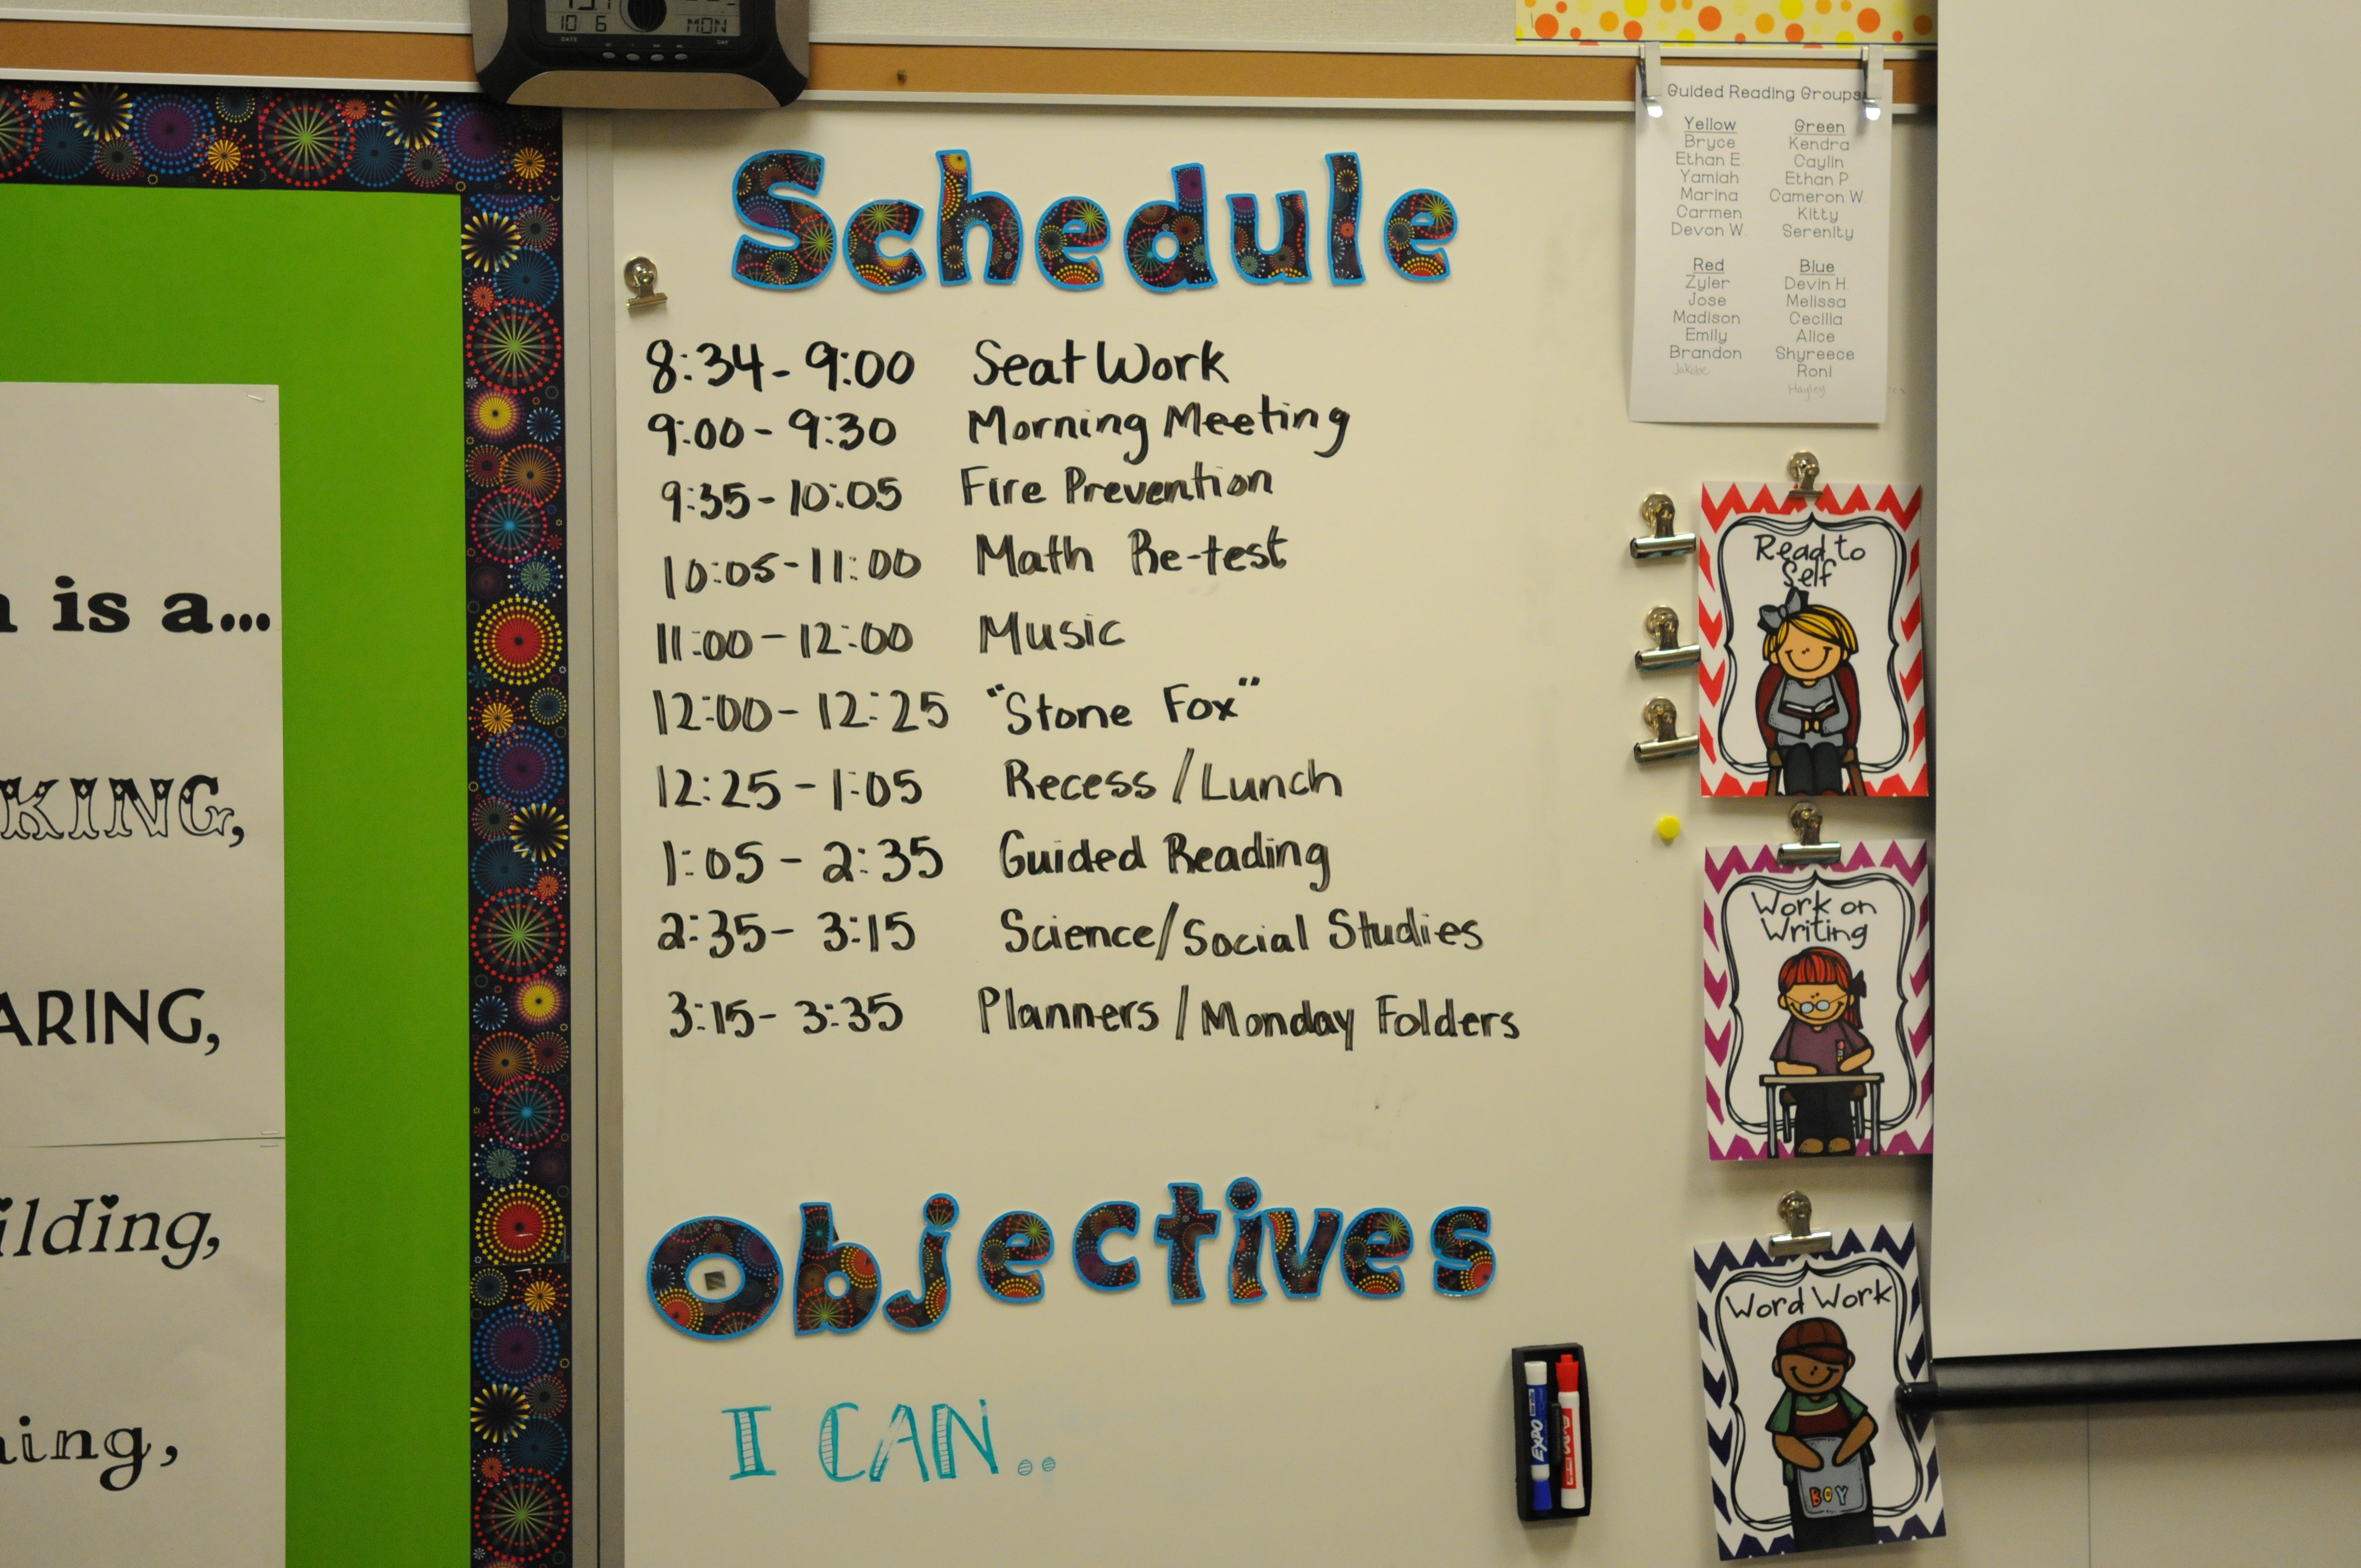 10 6 MON
DATE DAY
Guided Reading Groups
Yellow
Bryce
Ethan E.
Yamiah
Marina
Carmen
Devon W.
Green
Kendra
Caylin
Ethan P.
Cameron W.
Kitty
Serenity
Red
Zyler
Jose
Madison
Emily
Brandon
Jakobe
Blue
Devin H.
Melissa
Cecilia
Alice
Shyreece
Roni
Hayley
Schedule
8:34 - 9:00 Seat Work
9:00 - 9:30 Morning Meeting
9:35 - 10:05 Fire Prevention
10:05 - 11:00 Math Re-test
11:00 - 12:00 Music
12:00 - 12:25 "Stone Fox"
12:25 - 1:05 Recess / Lunch
1:05 - 2:35 Guided Reading
2:35 - 3:15 Science/Social Studies
3:15 - 3:35 Planners / Monday Folders
Objectives
I CAN..
is a...
KING,
ARING,
ilding,
ing,
Read to
Self
Work on
Writing
Word Work
BOY
EXPO